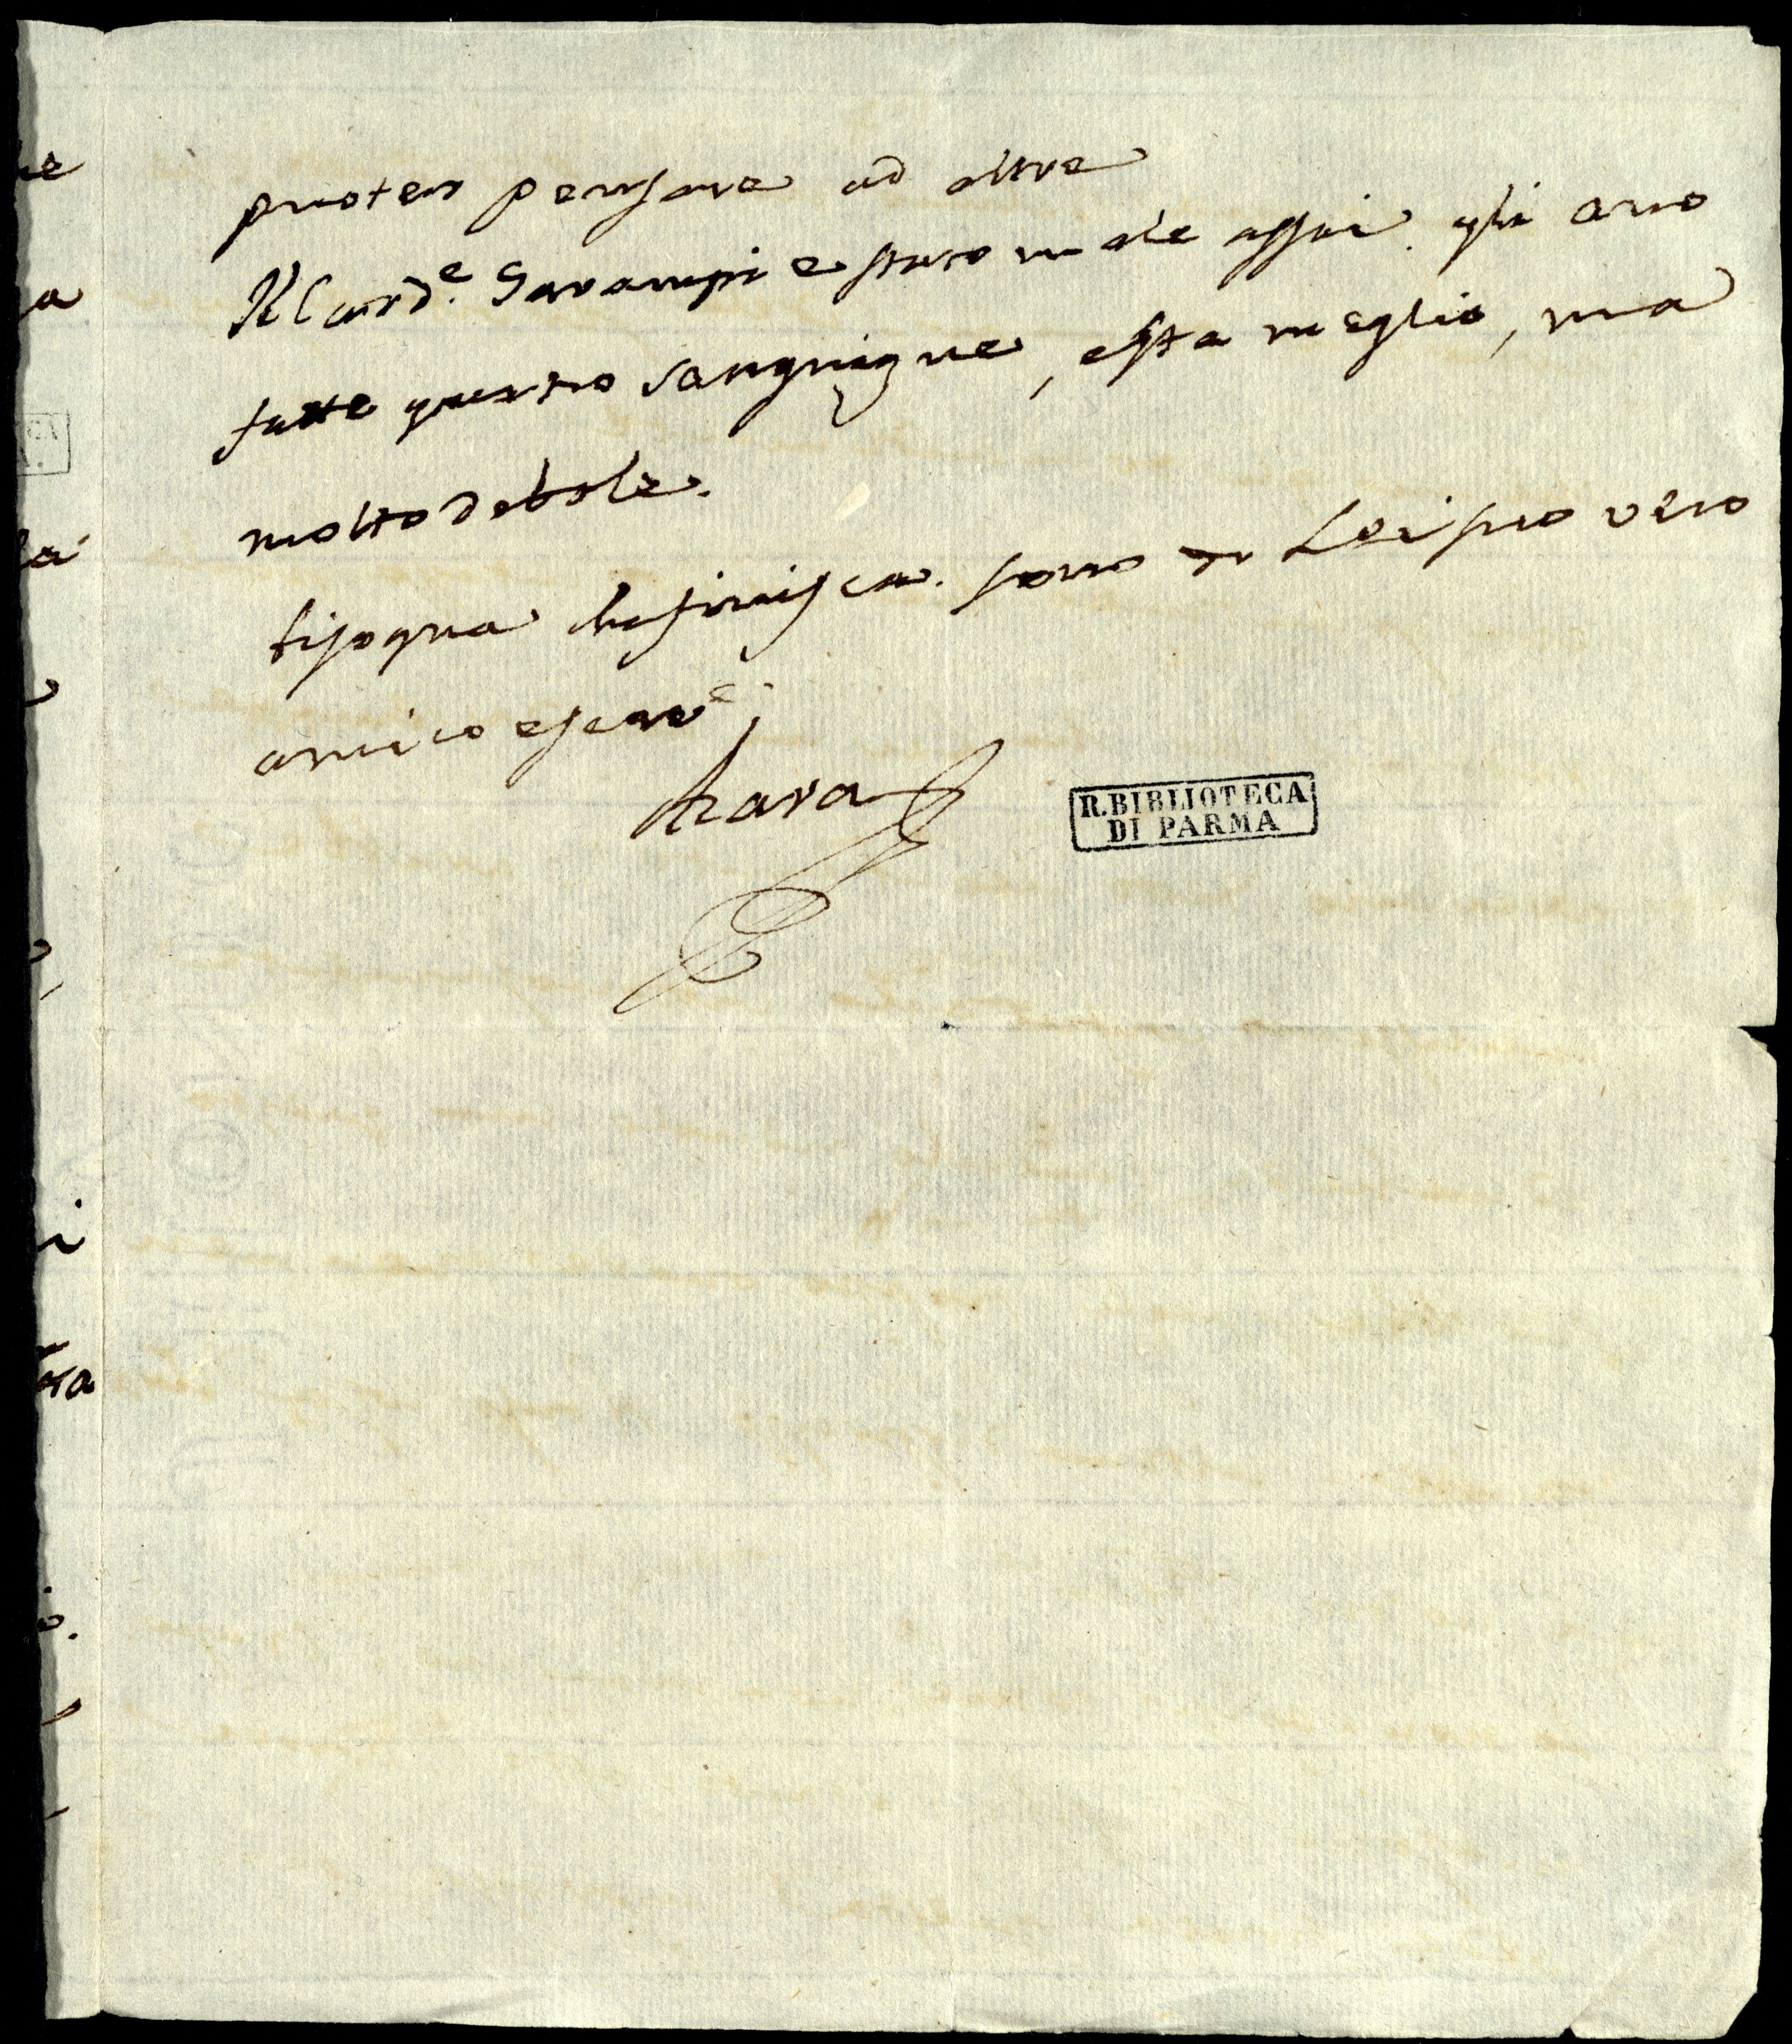 puoter pensare ad altre
Il Card.e Garampi e stato male assai. gli ano
fatte quatro sanguigne, e sta meglio, ma
molto debole.
bisogna che finisca. sono di Lei suo vero
amico e serv.e
Azara
R. BIBLIOTECA
DI PARMA